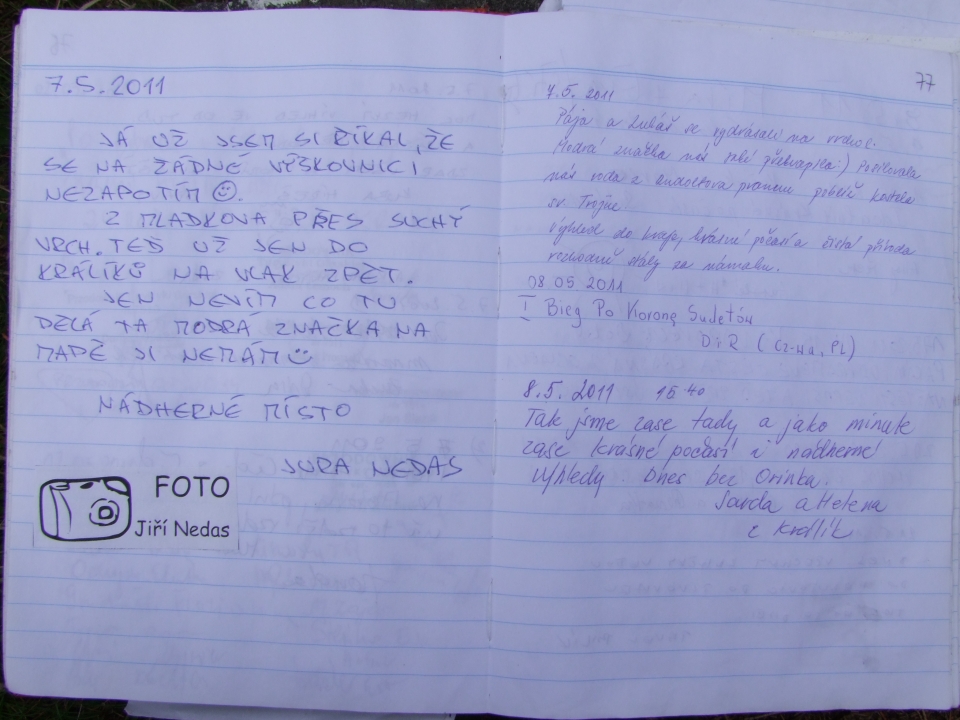 7.5.2011
JÁ UŽ JSEM SI ŘÍKAL, ŽE
SE NA ŽÁDNÉ VÝŠKOVNICI
NEZAPOTÍM ☺.
Z MLADKOVA PŘES SUCHÝ
VRCH. TEĎ UŽ JEN DO
KRÁLÍKŮ NA VLAK ZPĚT.
JEN NEVÍM CO TU
DĚLÁ TA MODRÁ ZNAČKA NA
MAPĚ JI NEMÁM ☺
NÁDHERNÉ MÍSTO
JURA NEDAS
FOTO
Jiří Nedas
77
7.5. 2011
Pája a Lubáš se vydrásali na vrchol.
Modrá značka nás také překvapila:) Posilovala
nás voda z pramenu poblíž kostela
sv. Trojice
Výhled do kraje, krásné počasí a čistá příroda
za námahu.
08 05 2011
I Bieg Po Koronę Sudetów
D i R (CZ-HA, PL)
8.5. 2011 15 40
Tak jsme zase tady a jako minule
zase krásné počasí i nádherné
výhledy. Dnes bez Orinka.
Jarda a Helena
z Králík